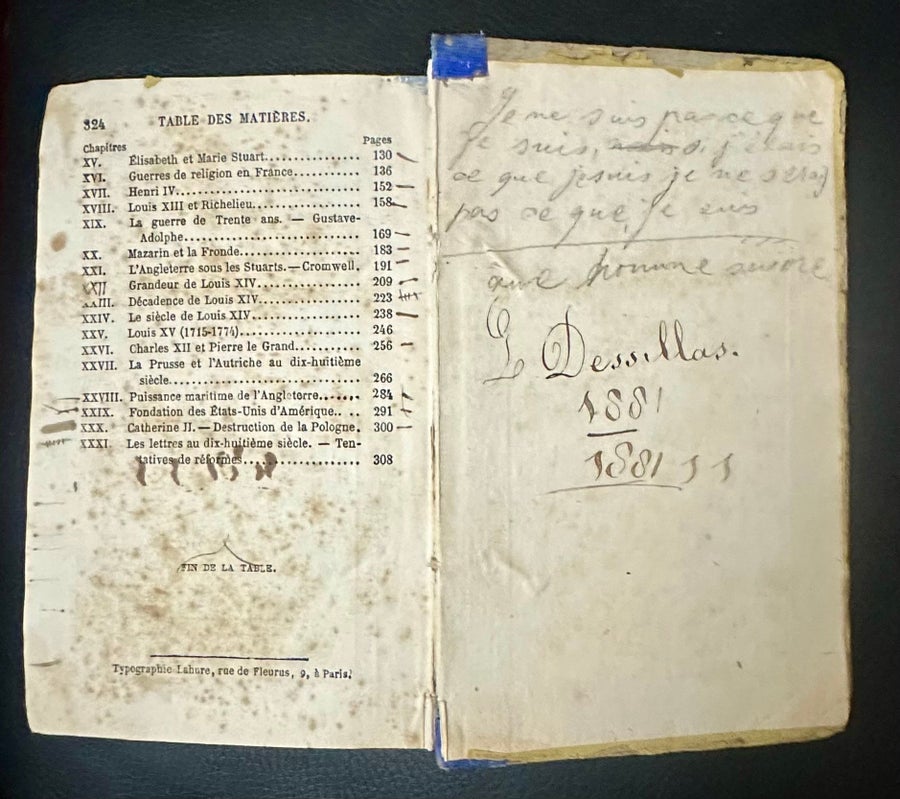 324 TABLE DES MATIÈRES.
Chapitres Pages
XV. Élisabeth et Marie Stuart............... 130
XVI. Guerres de religion en France........... 136
XVII. Henri IV................................ 152
XVIII. Louis XIII et Richelieu................. 158
XIX. La guerre de Trente ans. — Gustave-
Adolphe................................ 169
XX. Mazarin et la Fronde.................... 183
XXI. L'Angleterre sous les Stuarts.—Cromwell. 191
XXII Grandeur de Louis XIV................... 209
XXIII. Décadence de Louis XIV.................. 223
XXIV. Le siècle de Louis XIV.................. 238
XXV. Louis XV (1715-1774).................... 246
XXVI. Charles XII et Pierre le Grand.......... 256
XXVII. La Prusse et l'Autriche au dix-huitième
siècle................................. 266
XXVIII. Puissance maritime de l'Angleterre...... 284
XXIX. Fondation des États-Unis d'Amérique.. .. 291
XXX. Catherine II. — Destruction de la Pologne. 300
XXXI. Les lettres au dix-huitième siècle. — Ten-
tatives de réformes.................... 308
FIN DE LA TABLE.
Typographie Lahure, rue de Fleurus, 9, à Paris.
Je ne suis pas ce que
je suis, si j'étais
ce que je suis je ne serai
pas ce que je suis
que homme
Dessillas.
1881
1881 11